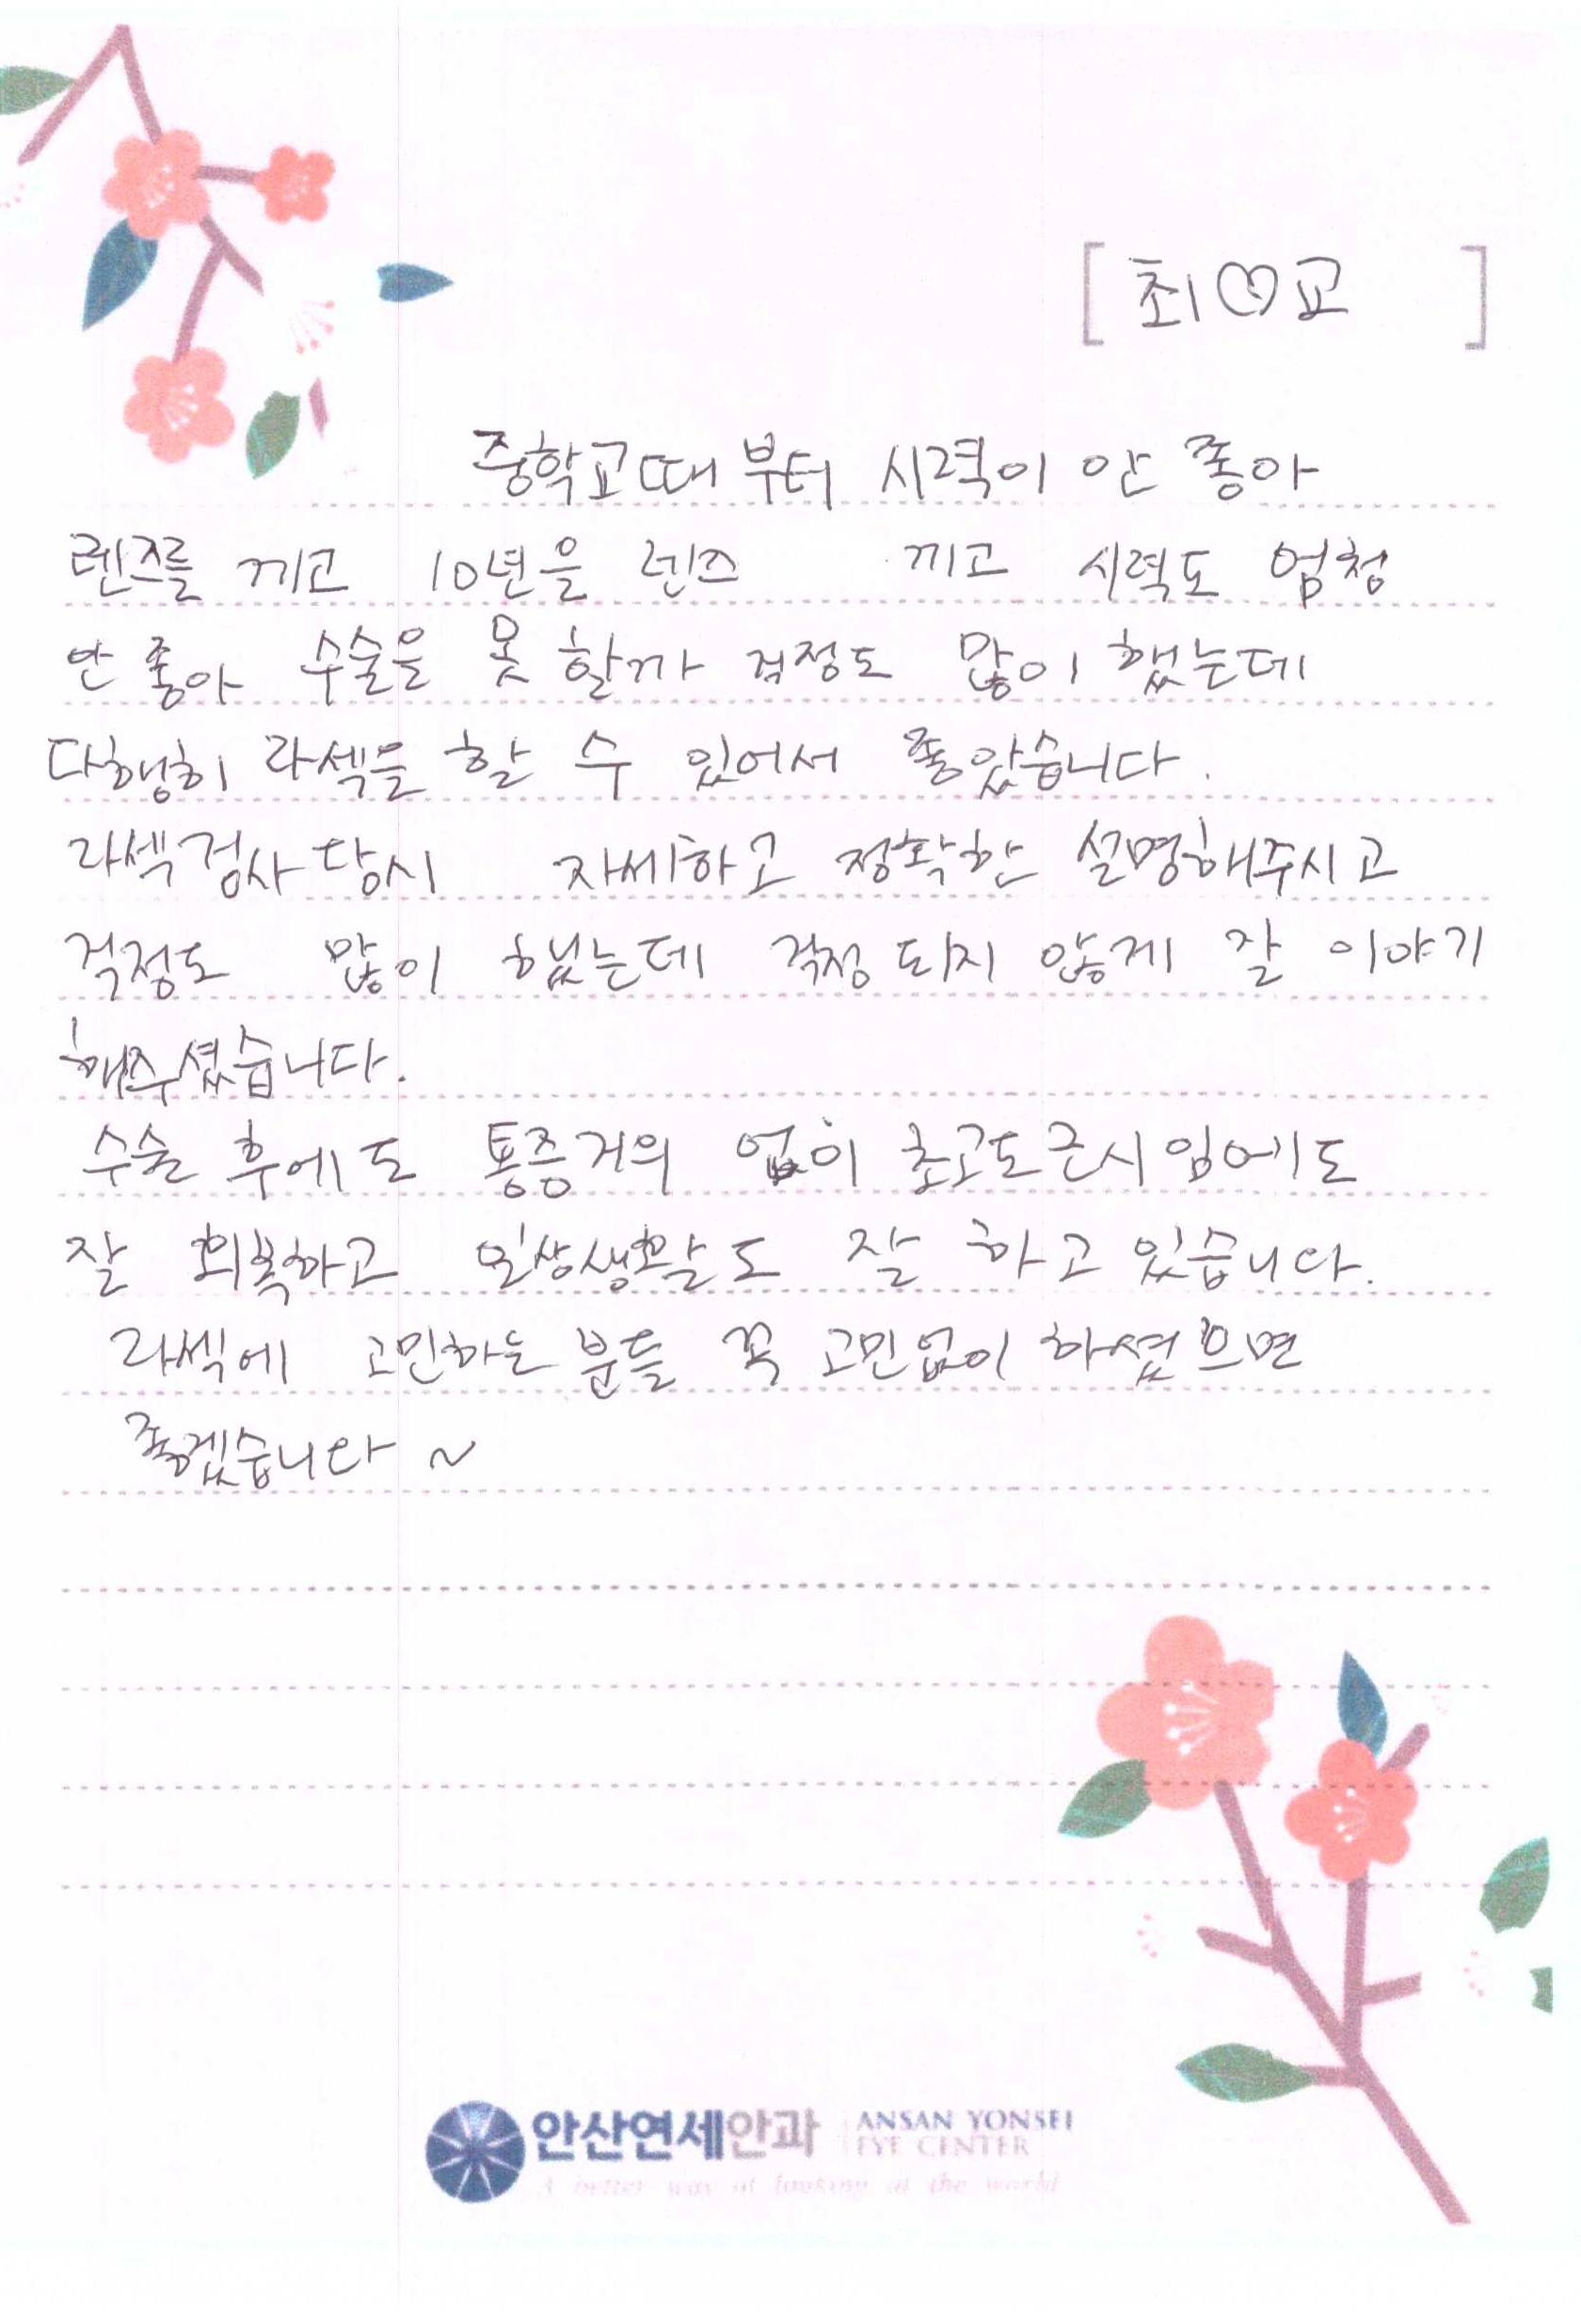 [ 최♡교 ]
중학교때 부터 시력이 안 좋아
렌즈를 끼고 10년을 렌즈 끼고 시력도 엄청
안 좋아 수술을 못 할까 걱정도 많이 했는데
다행히 라섹을 할 수 있어서 좋았습니다.
라섹검사 당시 자세하고 정확한 설명해주시고
걱정도 많이 했는데 걱정 되지 않게 잘 이야기
해주셨습니다.
수술 후에도 통증거의 없이 초고도근시임에도
잘 회복하고 일상생활도 잘 하고 있습니다.
라섹에 고민하는 분들 꼭 고민없이 하셨으면
좋겠습니다 ~
안산연세안과 ANSAN YONSEI
EYE CENTER
A better way of looking at the world